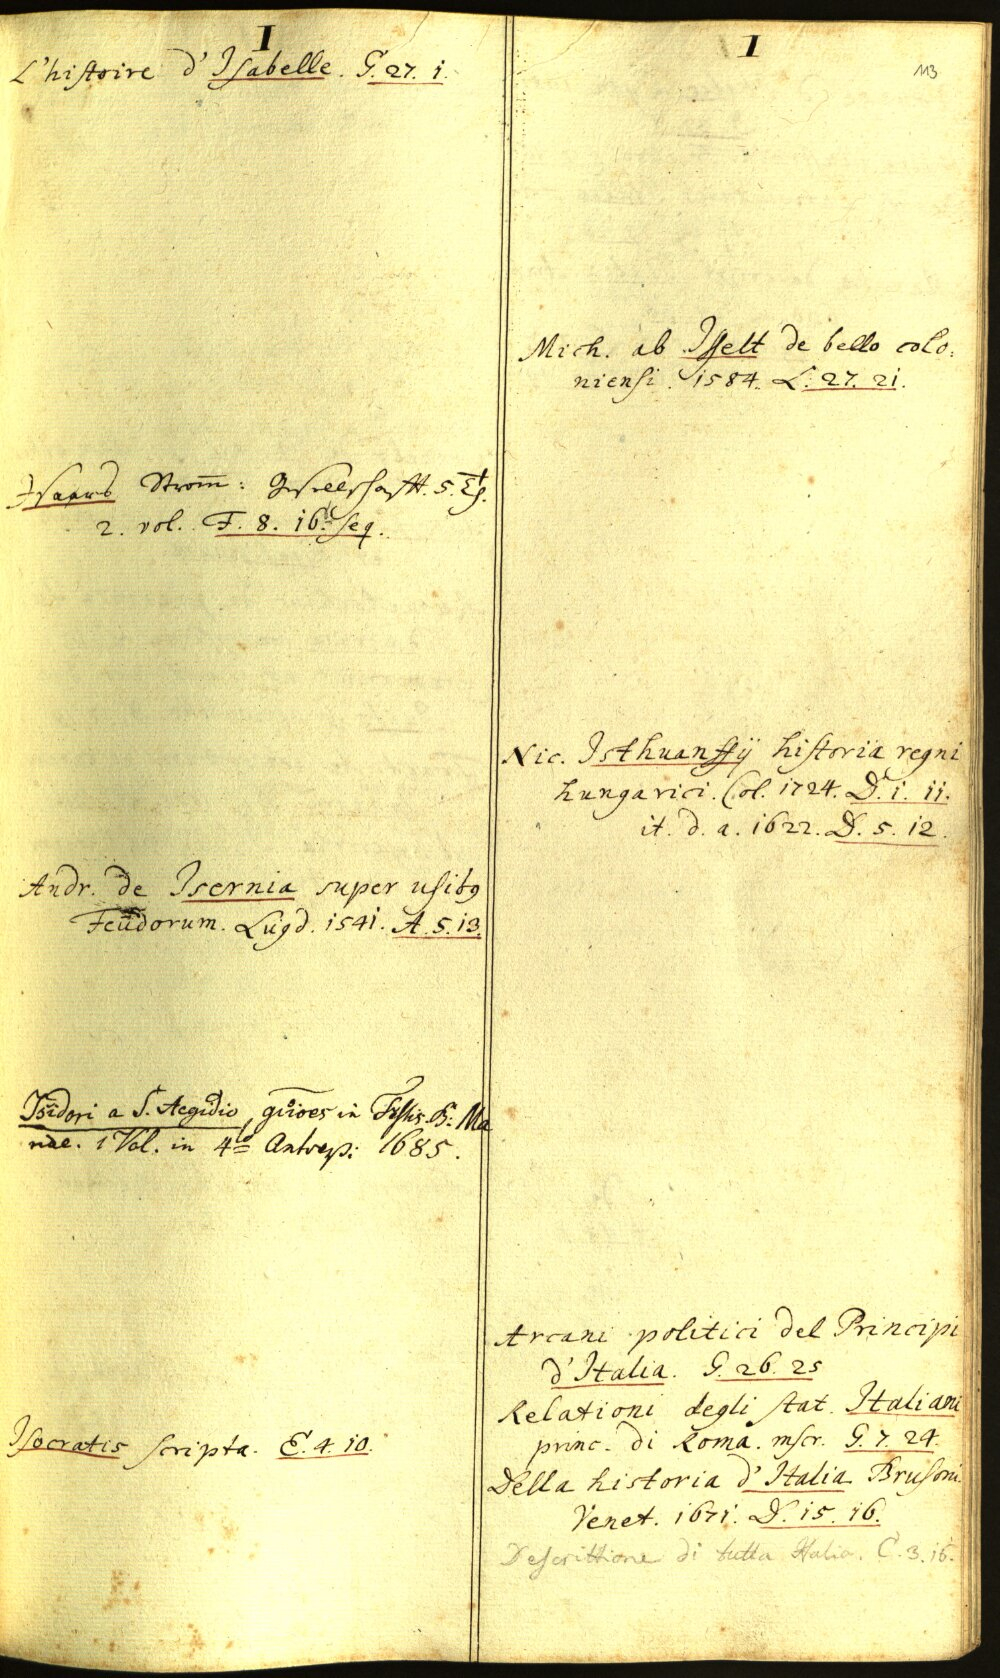 I
L'histoire d'Isabelle. G. 27. 1.
Isaaus Strom̄: Gesellschafft. 5. Th.
2. vol. F. 8. 16. seq.
Andr. de Isernia super usibq
Feudorum. Lugd. 1541. A. 5. 13.
Isidori a S. Aegidio, in Festis B: Ma
riae. 1 Vol. in 4to Antwerp: 1685.
Isocratis scripta. E. 4. 10.
I
113
Mich. ab Isselt de bello colo:
niensi. 1584. L. 27. 21.
Nic. Isthuanffij historia regni
hungarici. Col. 1724. D. 1. 11.
it. d. a. 1622. D. 5. 12.
Arcani politici del Principi
d'Italia. G. 26. 25
Relationi degli stat. Italiani
princ. di Roma. mscr. G. 7. 24.
Della historia d'Italia Brusoni
Venet. 1671. D. 15. 16.
Descrittione di tutta Italia. C. 3. 16.